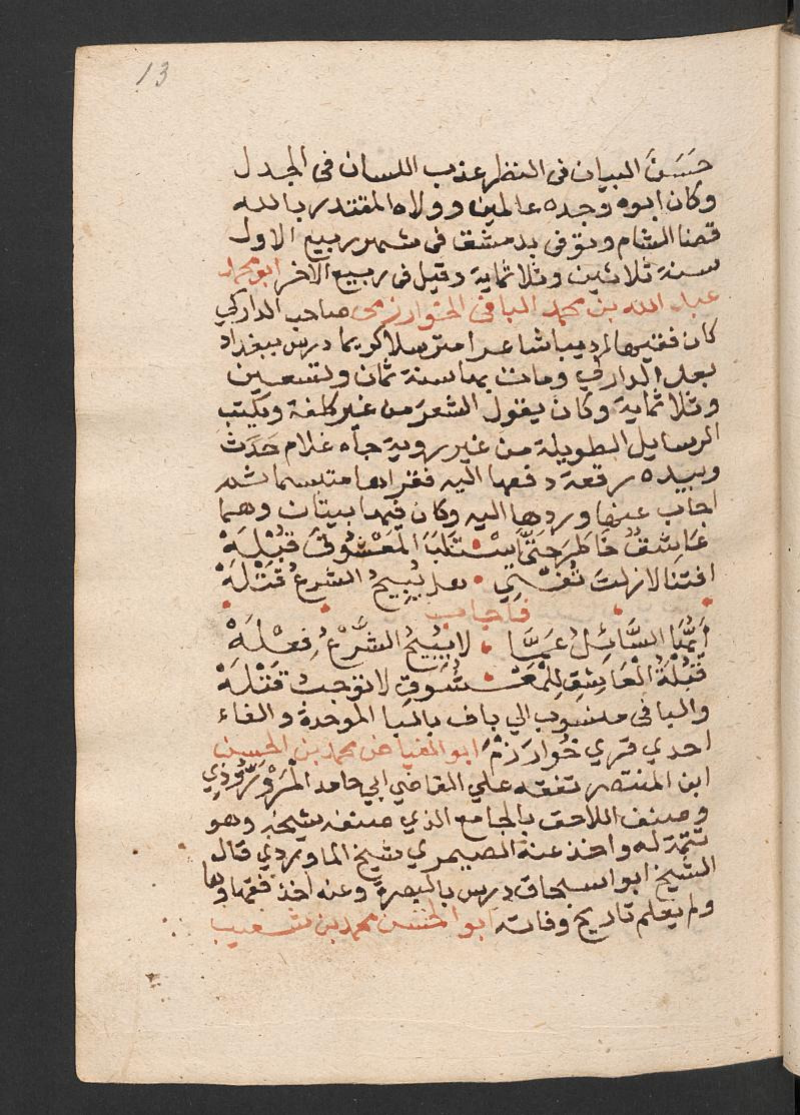 13
حَسَنَ البيان في النظر عذب اللسان في الجدل
وكان ابوه وجده عالمين وولاه المقتدر بالله
قضا الشام وتوفى بدمشق في شهر ربيع الاول
سنة ثلاثين وثلاثماية وقيل في ربيع الاخر ابو محمد
عبد الله بن محمد البافي الخوارزمى صاحب الداركي
كان فقيها اديبا شاعرا مترسلا كريما درس ببغداد
بعد الداركي ومات بها سنة ثمان وتسعين
وثلاثماية وكان يقول الشعر من غير كلفة ويكتب
الرسايل الطويلة من غير روية جاه غلام حَدَث
وبيده رقعة دفعها اليه فقراها متبسما ثم
اجاب عنها وردها اليه وكان فيها بيتان وهما
عَاشِقٌ خَاطَرَ حَتَّى اسْتَلَبَ المَعْشُوقَ قُبْلَهْ
افتنا لا زلت تُفْتي هل يُبِيحُ الشرعُ قَتْلَهْ
فاجاب
اَيُّهَا السَّائِلُ عَمَّا لا يُبِيحُ الشَّرْعُ فِعْلَهْ
قُبْلَةُ الْعَاشِقِ لِلْمَعْشُوقِ لا تُوجِبُ قَتْلَهْ
والبافي منسوب الي باف بالبا الموحدة والفاء
احدي قري خُوارَزْمَ ابو الفياض محمد بن الحسين
ابن المنتصر تفقه علي القاضي ابي حامد الْمَرْوَرُّوذِي
وصنف اللاحق بالجامع الذي صنفه شيخه وهو
تتمة له واخذ عنه الصيمري شيخ الماوردي قال
الشيخ ابو اسحاق درس بالبصرة وعنه اخذ فقهاوها
ولم يعلم تاريخ وفاته ابو الحسن محمد بن شعيب